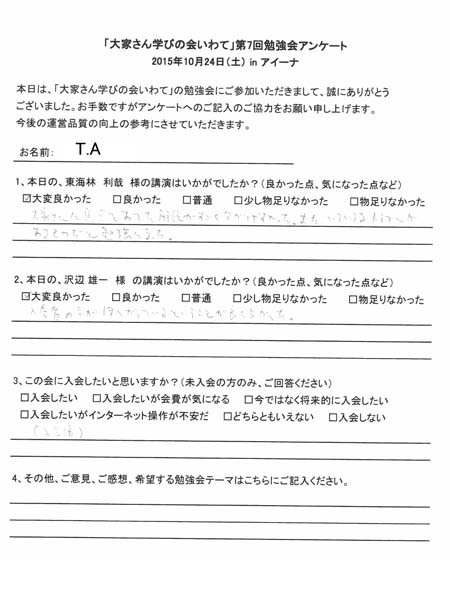 「大家さん学びの会いわて」第7回勉強会アンケート
2015年10月24日(土) in アイーナ
本日は、「大家さん学びの会いわて」の勉強会にご参加いただきまして、誠にありがとう
ございました。お手数ですがアンケートへのご記入のご協力をお願い申し上げます。
今後の運営品質の向上の参考にさせていただきます。
お名前: T.A
1、本日の、東海林 利哉 様の講演はいかがでしたか?(良かった点、気になった点など)
☑大変良かった □良かった □普通 □少し物足りなかった □物足りなかった
2、本日の、沢辺 雄一 様 の講演はいかがでしたか?(良かった点、気になった点など)
☑大変良かった □良かった □普通 □少し物足りなかった □物足りなかった
3、この会に入会したいと思いますか?(未入会の方のみ、ご回答ください)
□入会したい □入会したいが会費が気になる □今ではなく将来的に入会したい
□入会したいがインターネット操作が不安だ □どちらともいえない □入会しない
4、その他、ご意見、ご感想、希望する勉強会テーマはこちらにご記入ください。